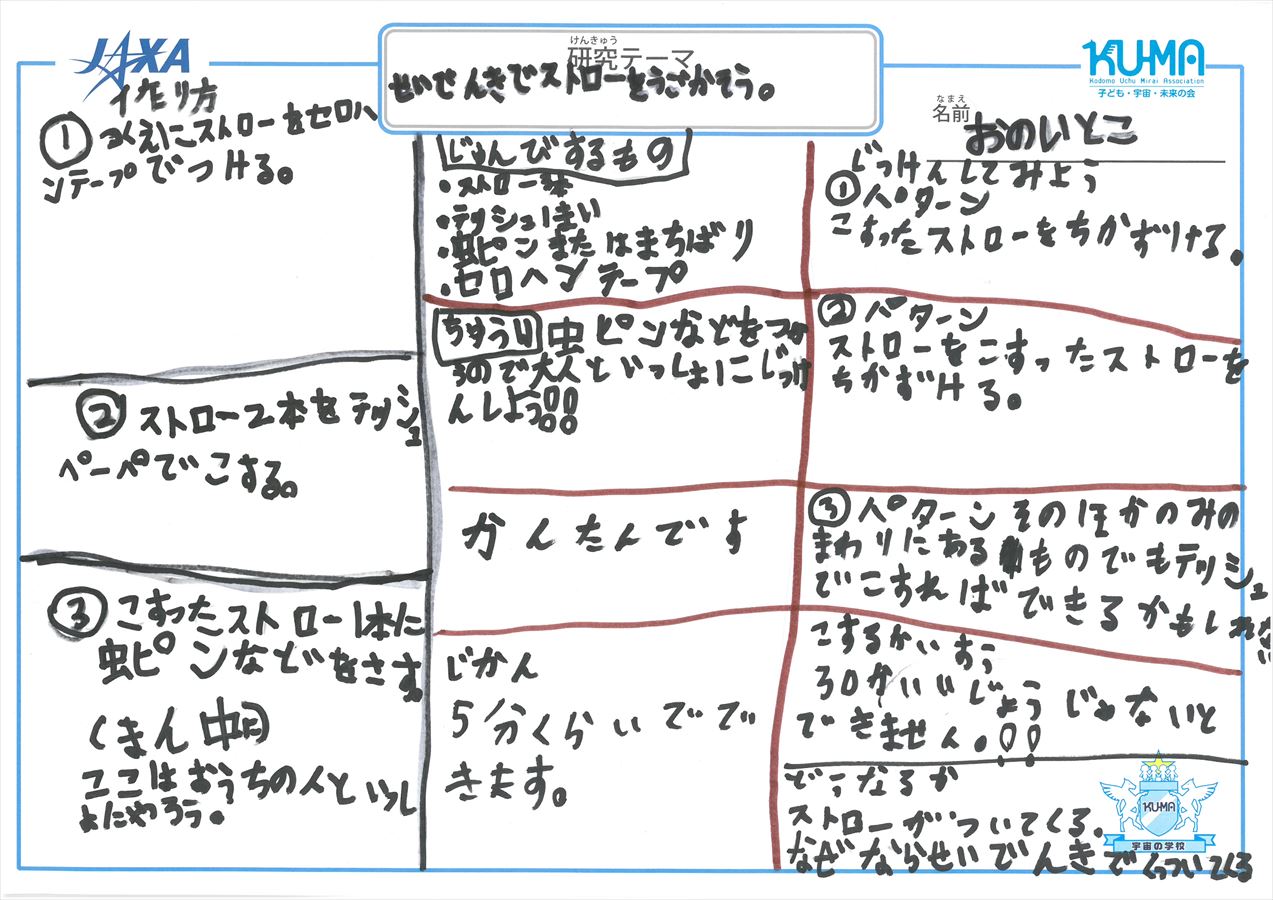 JAXA
けんきゅう
研究テーマ
せいでんきでストローをうごかそう。
KU-MA
Kodomo Uchu Mirai Association
子ども・宇宙・未来の会
なまえ
名前
おのいとこ
作り方
① つくえにストローをセロハ
ンテープでつける。
② ストロー2本をテッシュ
ペーパでこする。
③ こすったストロー1本に
虫ピンなどをさす。
(まん中)
ここはおうちの人といっし
ょにやろう。
じゅんびするもの
・ストロー3本
・テッシュ1まい
・虫ピンまたはまちばり
・セロハンテープ
ちゅうい 虫ピンなどをつか
うので大人といっしょにじっけ
んしよう!!
かんたんです
じかん
5分くらいでで
きます。
じっけんしてみよう
①パターン
こすったストローをちかずける。
②パターン
ストローをこすったストローを
ちかずける。
③パターンそのほかのみの
まわりにあるものでもテッシュ
でこすればできるかもしれない
こするかいすう
30かいいじょうじゃないと
できません。!!
どうなるか
ストローがついてくる。
なぜならせいでんきでくっついてくる
KU-MA
宇宙の学校